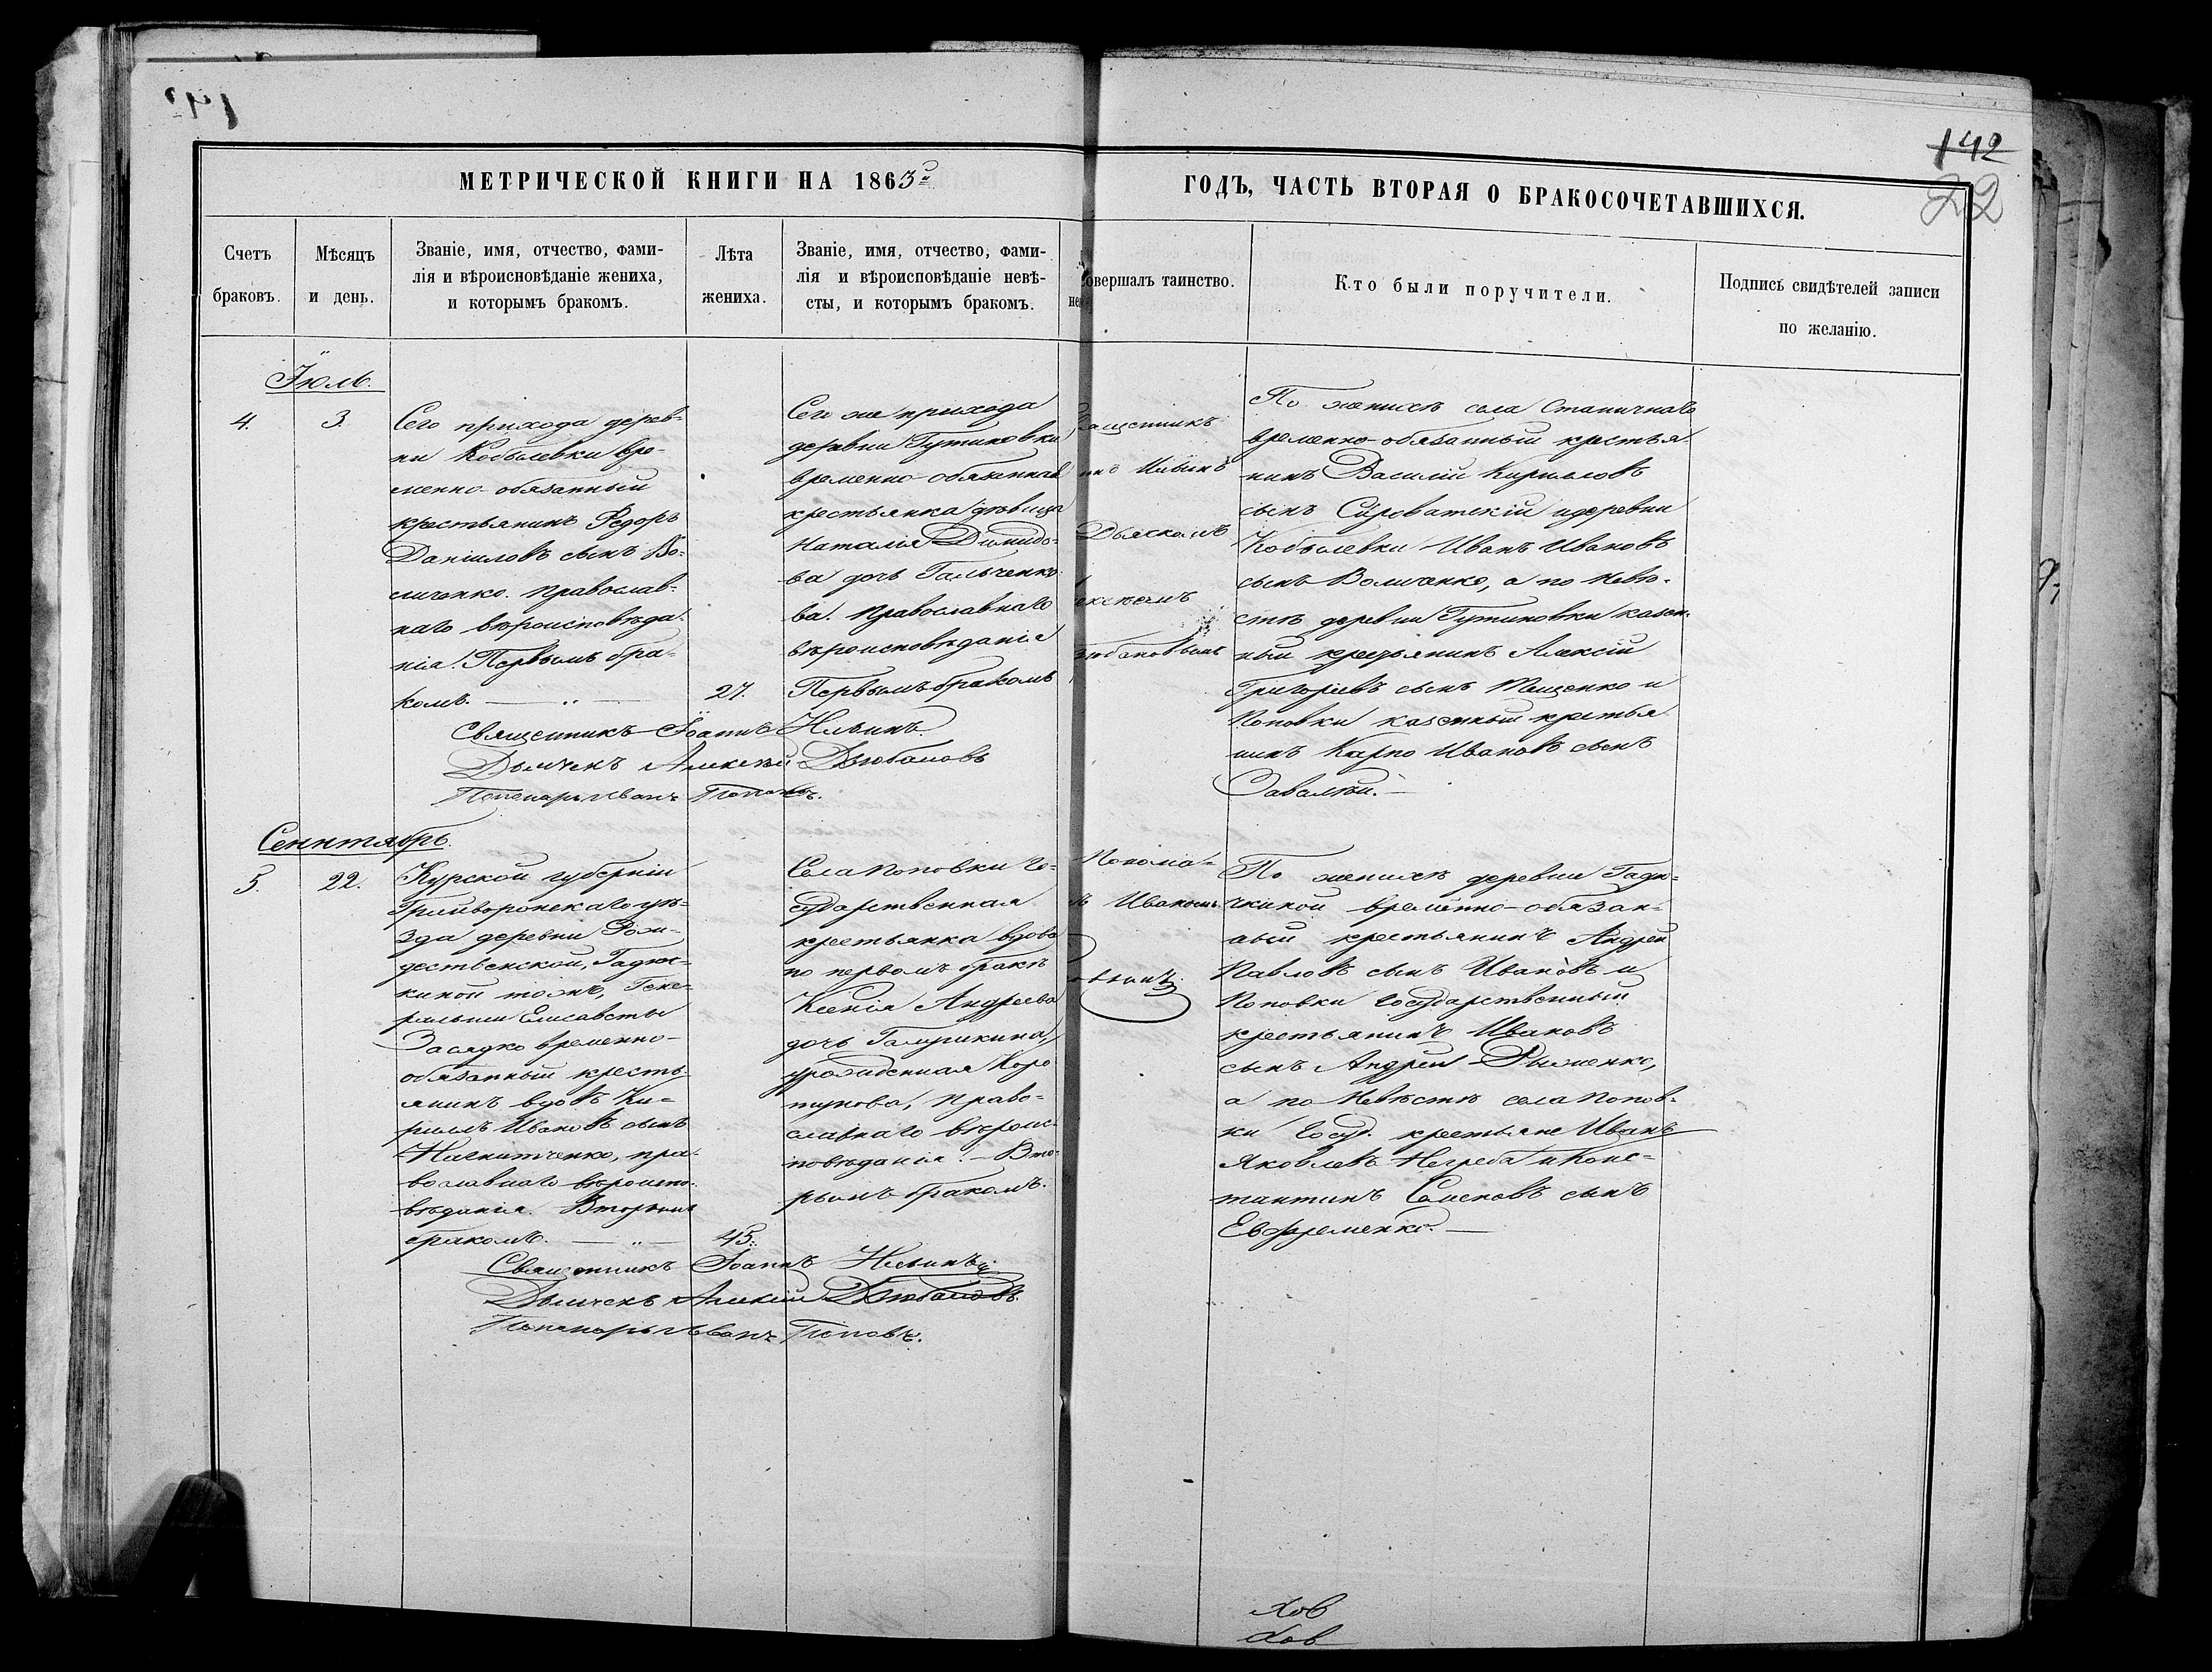 142
22
МЕТРИЧЕСКОЙ КНИГИ НА 1863й
ГОДЪ, ЧАСТЬ ВТОРАЯ О БРАКОСОЧЕТАВШИХСЯ.
Счетъ
браковъ.
Мѣсяцъ
и день.
Званіе, имя, отчество, фами-
лія и вѣроисновѣданіе жениха,
и которымъ бракомъ.
Лѣта
жениха.
Званіе, имя, отчество, фами-
лія и вѣроисповѣданіе невѣ-
сты, и которымъ бракомъ.
не
совершалъ таинство.
Кто были поручители.
Подпись свидѣтелей записи
по желанію.
Іюль.
4.
3.
Сего прихода дерев-
ни Кобылевки вре-
менно-обязанный
крестьянинъ Ѳедоръ
Даніиловъ сынъ Во-
личенко. Православ-
наго вѣроисповѣда-
нія. Первымъ бра-
комъ.
27.
Сего же прихода
деревни Гутиковки
временно-обязанная
крестьянка дѣвица
Наталія Демидо-
ва дочь Гальченко-
ва. Православнаго
вѣроисповѣданія
Первымъ бракомъ
Священникъ
Ильинъ
Дьячкомъ
Дзюбановымъ
По женихѣ села Станичнаго
временно-обязанный крестья-
нинъ Василій Кирилловъ
сынъ Сыроватскій идеревни
Кобылевки Иванъ Ивановъ
сынъ Воличенко, а по невѣ-
стѣ деревни Гутиковки казен-
ный крестьянинъ Алексій
Григоріевъ сынъ Тещенко и
Поповки казенный крестья
нинъ Карпо Ивановъ сынъ
Завалій.
Священникъ Іоаннъ Ильинъ
Дьячекъ Алексѣй Дзюбановъ
Пономарь Иванъ Поповъ.
Сентябрь.
5.
22.
Курской губерніи
Грайворонскаго уѣ-
зда деревни Рож-
дественской, Гадюч-
киной тожъ, Гене-
ральши Елисаветы
Засядко временно-
обязанный кресть-
янинъ вдовъ Ки-
риллъ Ивановъ сынъ
Никитченко, пра-
вославнаго вѣроиспо-
вѣданія. Вторымъ
бракомъ.
45.
Села Поповки го-
сударственная
крестьянка вдова
по первомъ бракѣ
Ксенія Андреева
дочь Галушкина,
урожденная Коро
тунова, право-
славнаго вѣроис-
повѣданія. Вто-
рымъ бракомъ.
Понома-
Иваномъ
По женихѣ деревни Гадю-
чкиной временно-обязан-
ный крестьянинъ Андрей
Павловъ сынъ Ивановъ и
Поповки государственный
крестьянинъ Ивановъ
сынъ Андрей Рыженко,
а по невѣстѣ села Попов-
ки Госуд. крестьяне Иванъ
Яковлевъ Негреба и Конс-
тантинъ Семеновъ сынъ
Евфременко.
Священникъ Іоаннъ Ильинъ
Дьячекъ Алексій Дзюбановъ.
Пономарь Иванъ Поповъ.